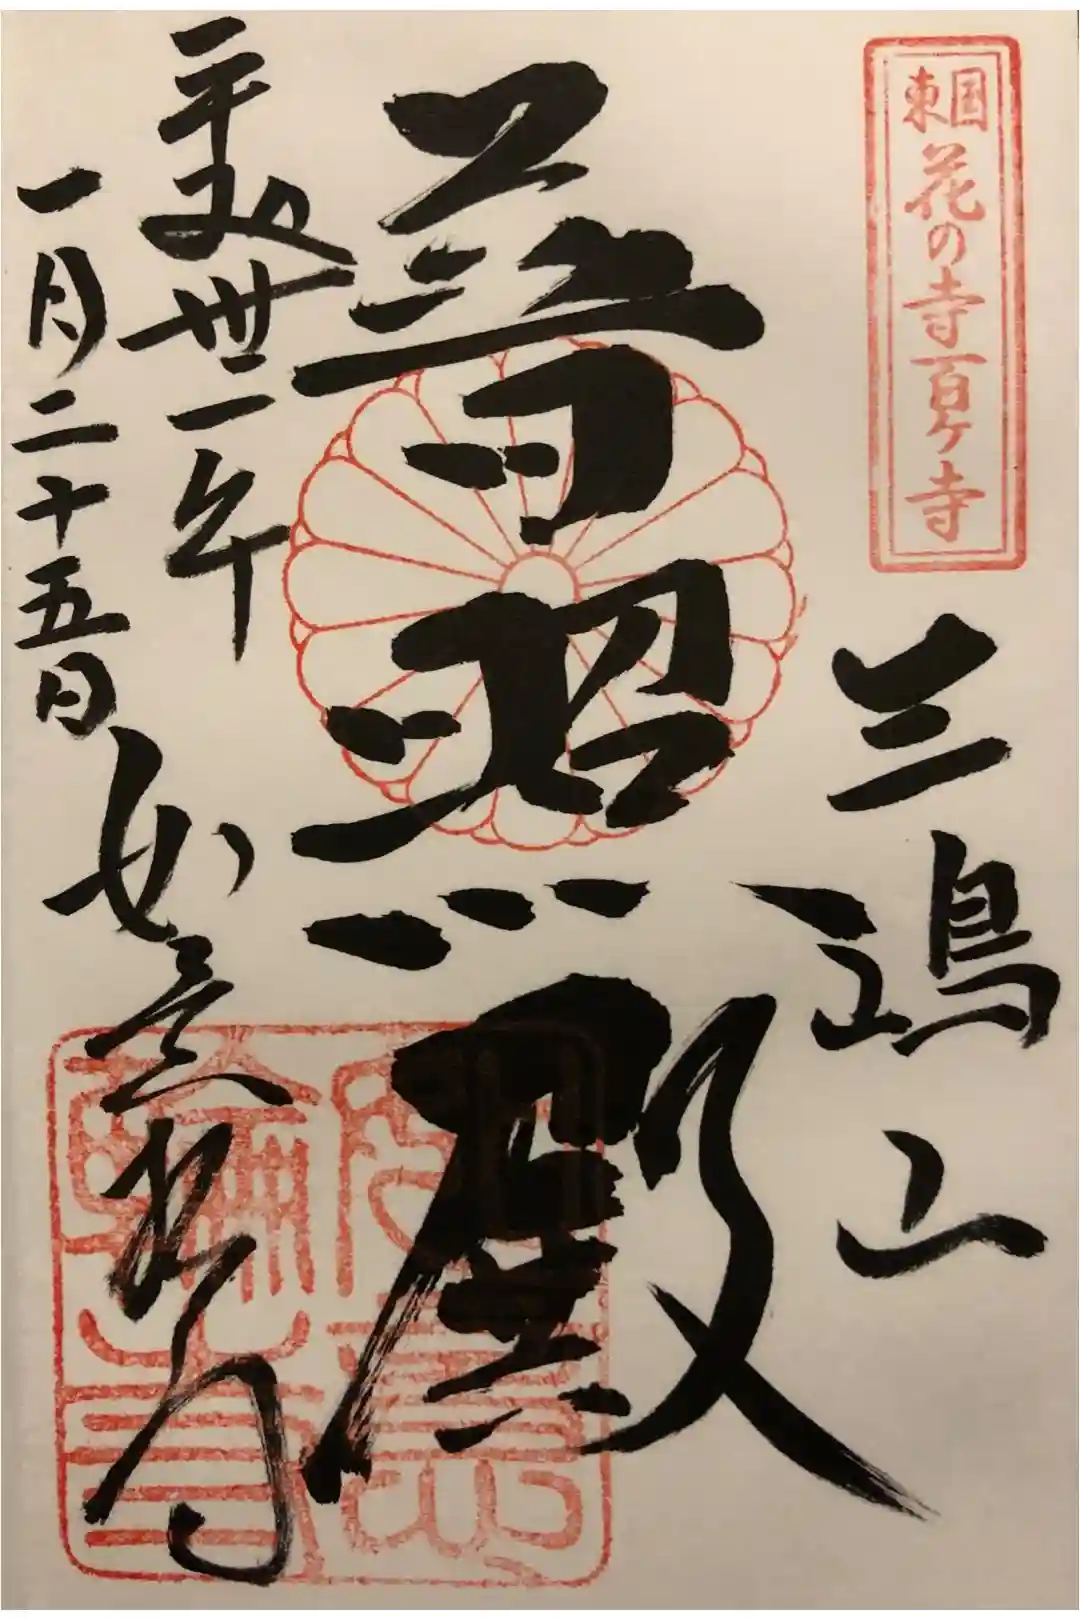 東国花の寺百ヶ寺
三嶋山
照殿
平成卅一年
一月二十五日
如意輪寺